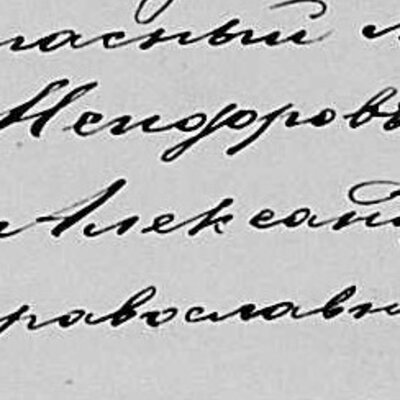 пасный
Исидоровъ
Александ
равославн